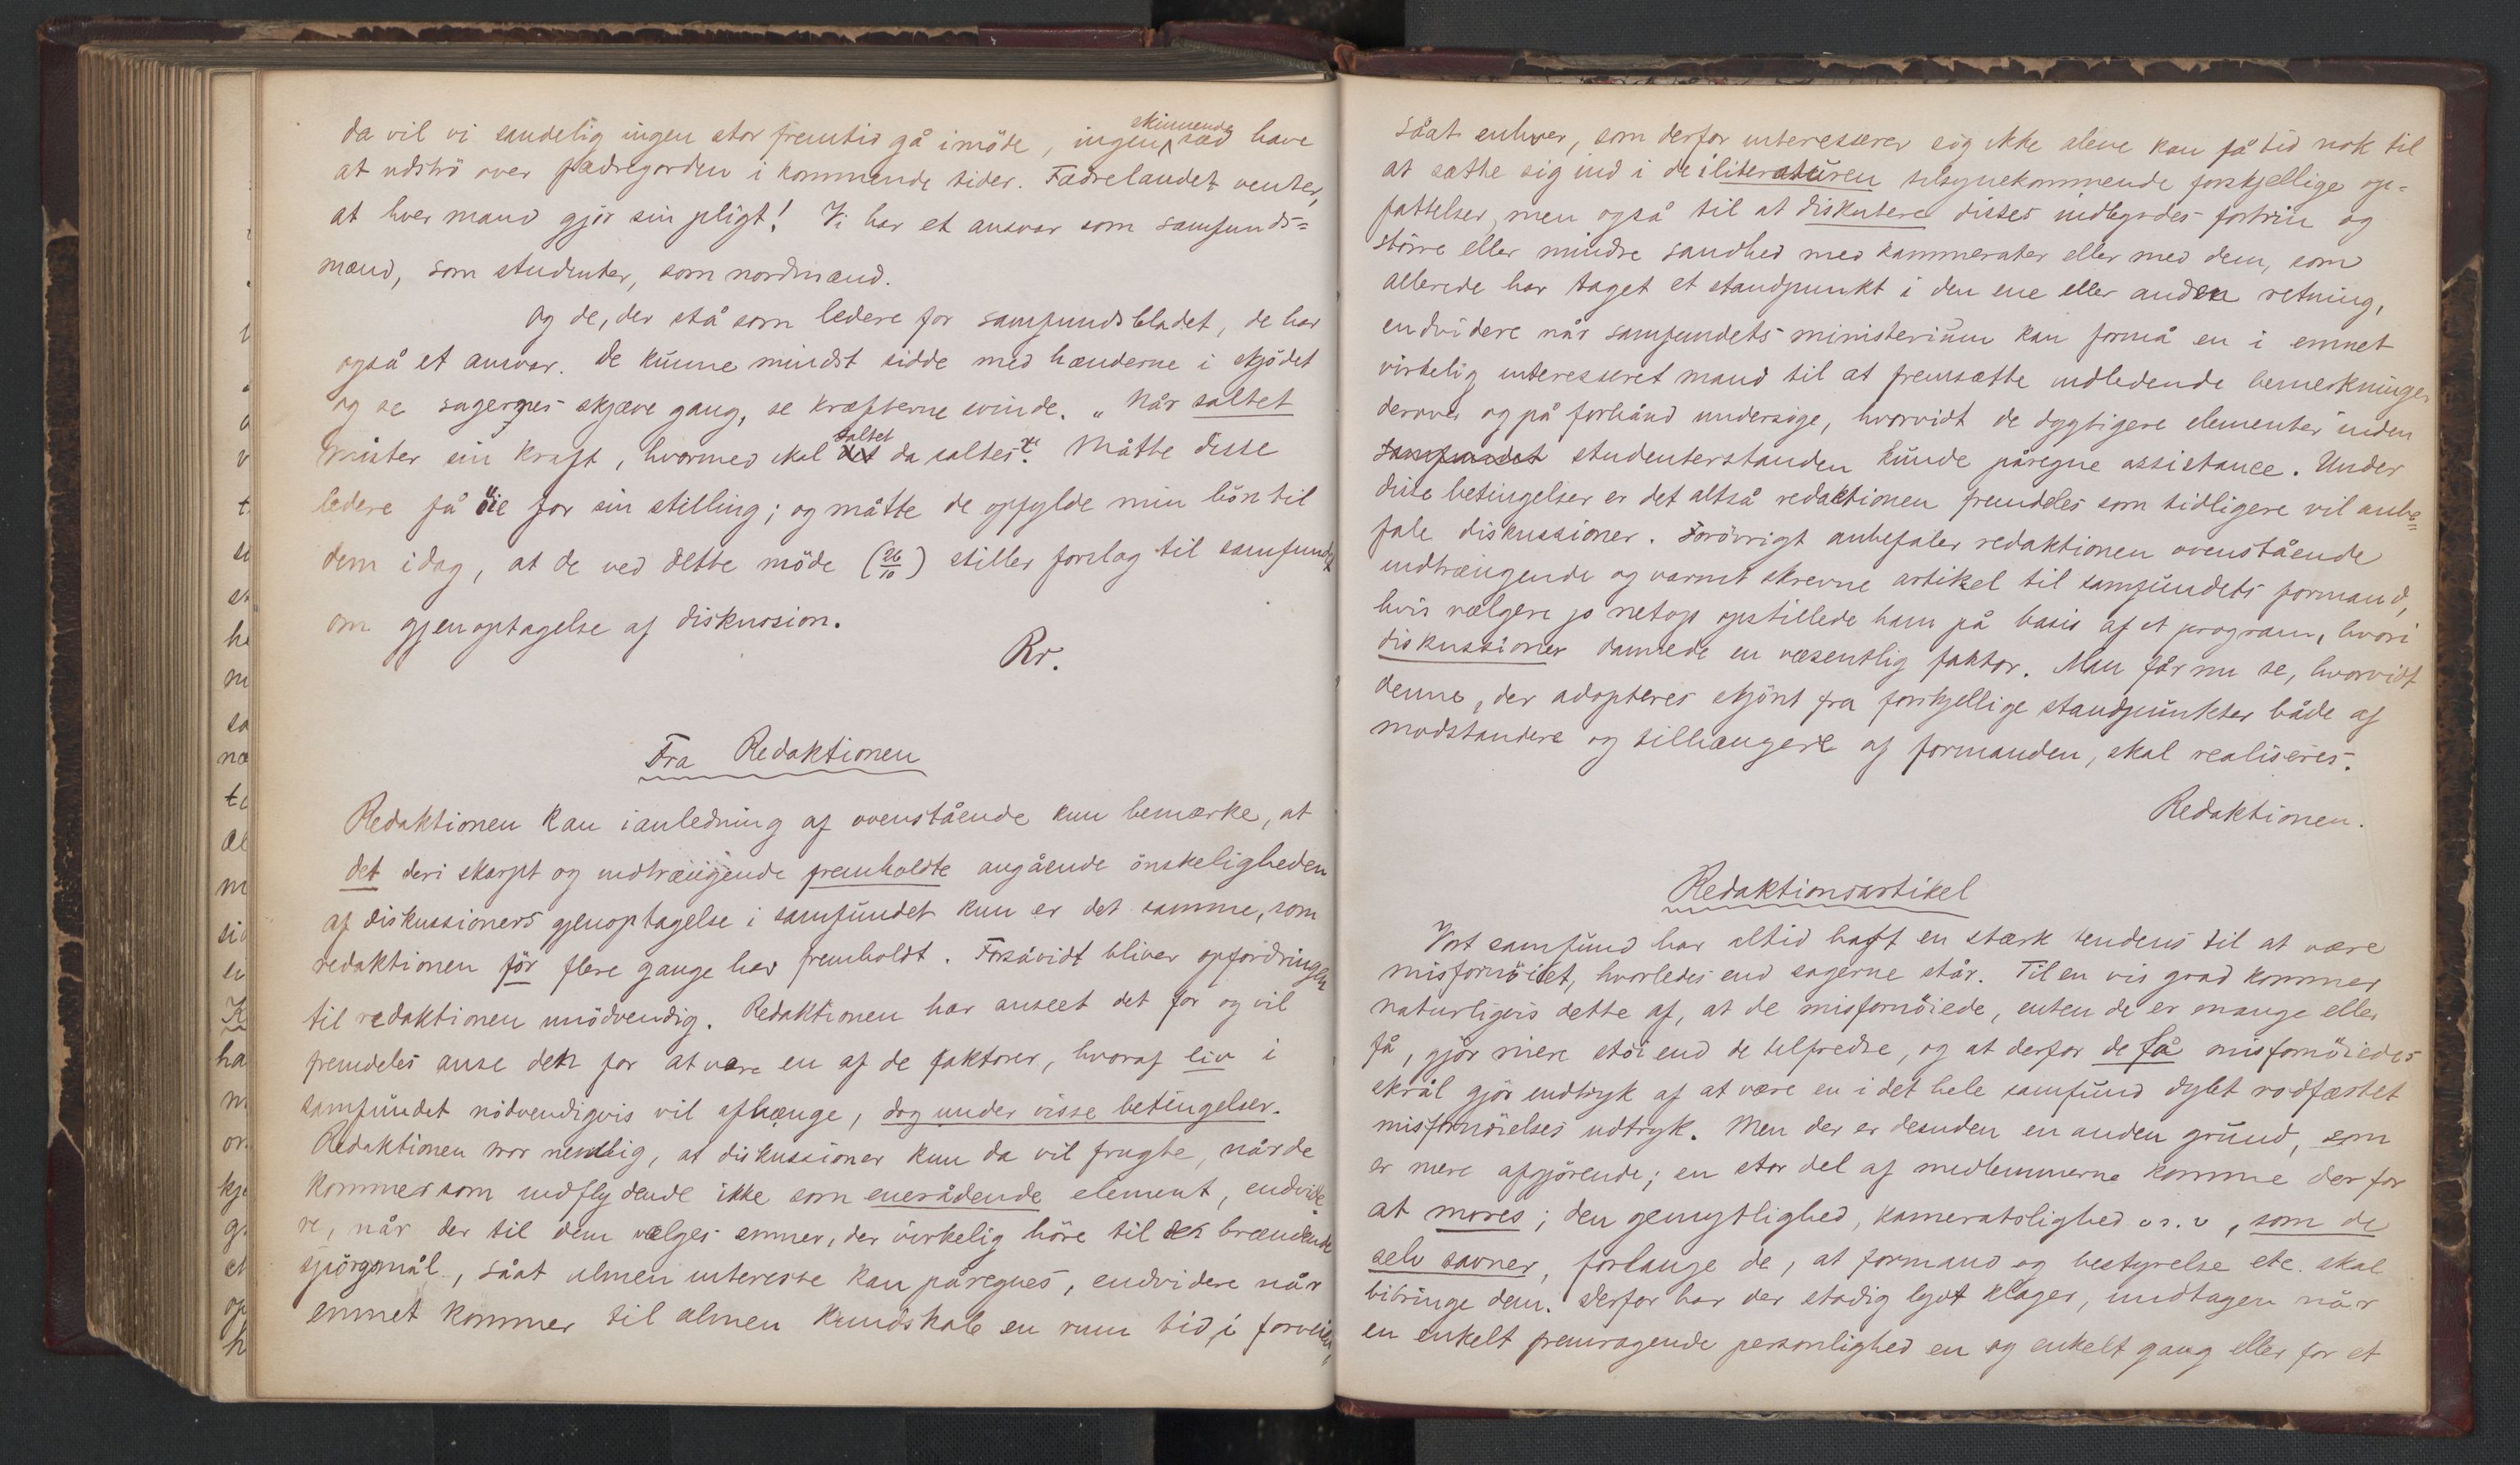 da vil vi sandelig ingen stor fremtid gå imöde, ingen skinnende sæd have
at udströ over fædregorden i kommende tider. Fædrelandet venter,
at hver mand gjör sin pligt! Vi har et ansvar som samfunds=
mænd, som studenter, som nordmænd.
Og de, der stå som ledere for samfundsbladet, de har
også et ansvar. De kunne mindst sidde med hænderne i skjödet
og se sagernes skjæve gang, se kræfterne svinde. „Når saltet
mister sin kraft, hvormed skal det saltet da saltes?" Måtte disse
ledere få öie for sin stilling; og måtte de opfylde min bön til
dem idag, at de ved dette möde (26/10) stiller forslag til samfundet
om gjenoptagelse af diskussion.
Rr.
Fra Redaktionen
Redaktionen kan ianledning af ovenstående kun bemærke, at
det deri skarpt og indtrængende fremholdte angående önskeligheden
af diskussioners gjenoptagelse i samfundet kun er det samme, som
redaktionen för flere gange har fremholdt. Forsåvidt bliver opfordringen
til redaktionen unödvendig. Redaktionen har anseet det for og vil
fremdeles anse det for at være en af de faktorer, hvoraf liv i
samfundet nödvendigvis vil afhænge, dog under visse betingelser.
Redaktionen tror nemlig, at diskussioner kun da vil frugte, når de
kommer som indflydende ikke som enerådende element, endvide=
re, når der til dem vælges emner, der virkelig höre til de brændende
spörgsmål, såat almen interesse kan påregnes, endvidere når
emnet kommer til almen kundskab en rum tid i forveien,
såat enhver, som derfor interesserer sig ikke alene kan få tid nok til
at sætte sig ind i de i literaturen tilsynekommende forskjellige op=
fattelser, men også til at diskutere disses indbyrdes fortrin og
större eller mindre sandhed med kammerater eller med dem, som
allerede har taget et standpunkt i den ene eller anden retning,
endvidere når samfundets ministerium kan formå en i emnet
virkelig interesseret mand til at fremsætte indledende bemerkninger
derover og på forhånd undersöge, hvorvidt de dygtigere elementer inden
samfundet studenterstanden kunde påregne assistance. Under
disse betingelser er det altså redaktionen fremdeles som tidligere vil anbe=
fale diskussioner. Forövrigt anbefaler redaktionen ovenstående
indtrængende og varmt skrevne artikel til samfundets formand,
hvis vælgere jo netop opstillede ham på basis af et program, hvori
diskussioner dannede en væsentlig faktor. Man får nu se, hvorvidt
denne, der adopteres skjönt fra forskjellige standpunkter både af
modstandere og tilhængere af formanden, skal realiseres.
Redaktionen.
Redaktionsartikel
Vort samfund har altid haft en stærk tendens til at være
misfornöiet, hvorledes end sagerne står. Til en vis grad kommer
naturligvis dette af, at de misfornöiede, enten de er mange eller
få, gjör mere stöi end de tilfredse, og at derfor de få misfornöiedes
skrål gjör indtryk af at være en i det hele samfund dybt rodfæstet
misfornöielses udtryk. Men der er desuden en anden grund, som
er mere afgjörende; en stor del af medlemmerne komme der for
at mores; den gemytlighed, kameratslighed o.s.v, som de
selv savner, forlange de, at formand og bestyrelse etc. skal
bibringe dem. Derfor har der stadig lydt klager, undtagen når
en enkelt fremragende personlighed en og enkelt gang eller for et